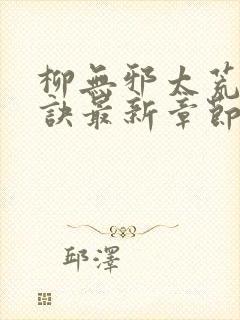 柳無邪太荒
訣最新章節
邱澤